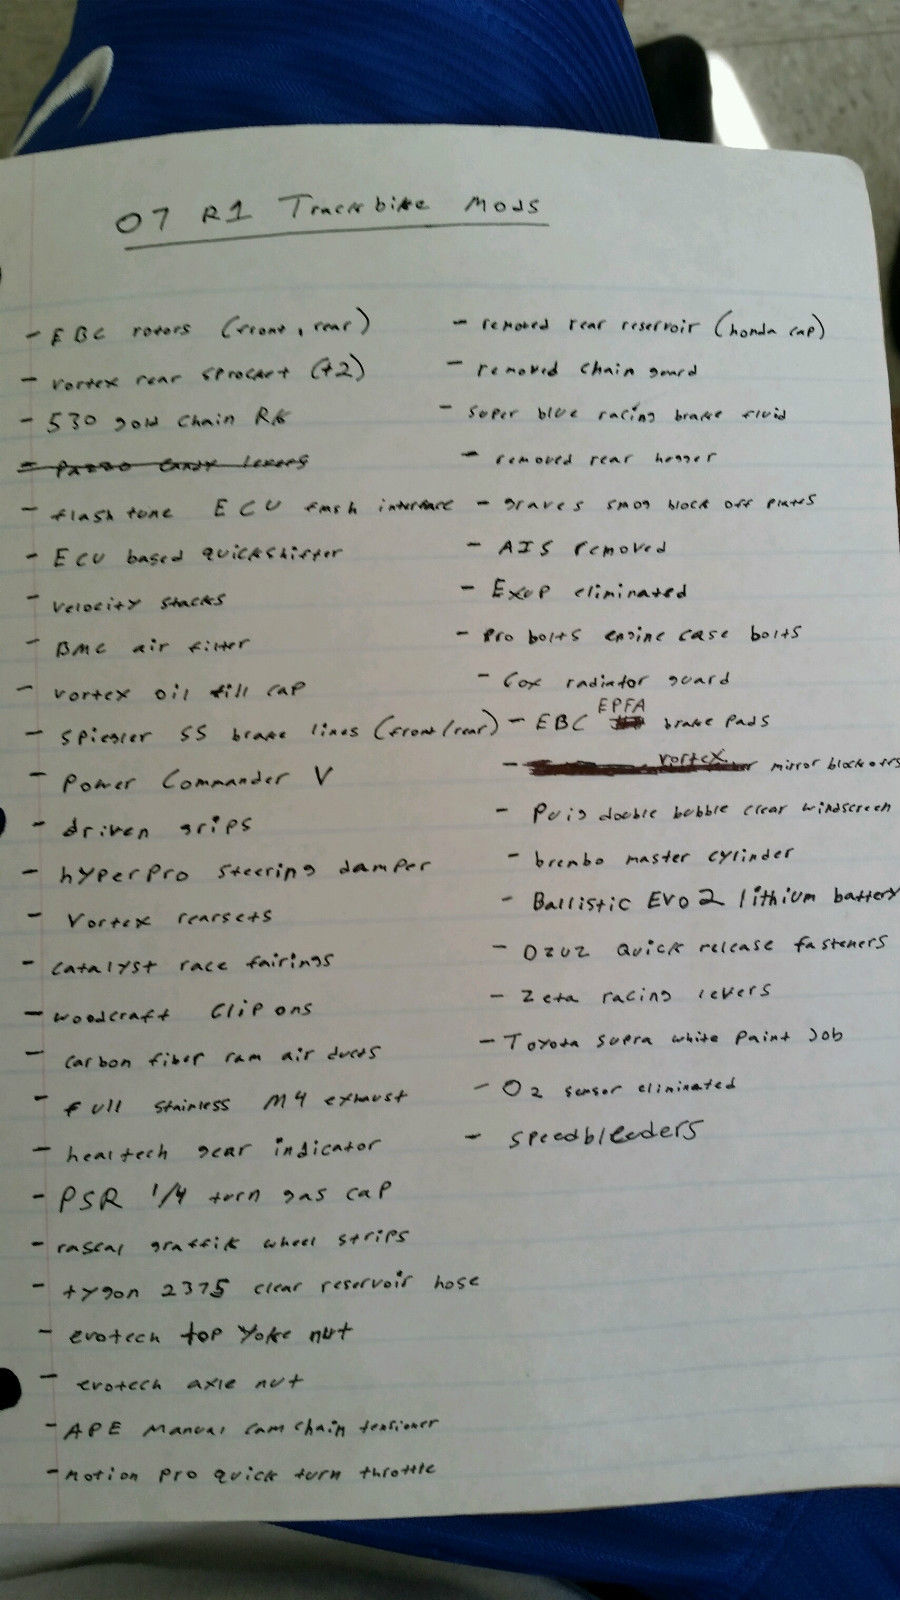 07 R1 Trackbike Mods
- EBC rotors (front, rear)
- vortex rear sprocket (+2)
- 530 gold chain RK
- Pazzo levers
- flash tune ECU flash interface
- ECU based quickshifter
- velocity stacks
- BMC air filter
- vortex oil fill cap
- Spiegler SS brake lines (front/rear)
- Power Commander V
- driven grips
- hyperpro steering damper
- Vortex rearsets
- catalyst race fairings
- woodcraft Clip ons
- carbon fiber ram air ducts
- full stainless M4 exhaust
- healtech gear indicator
- PSR 1/4 turn gas cap
- rascal graffik wheel strips
- tygon 2375 clear reservoir hose
- evotech top yoke nut
- evotech axle nut
- APE Manual cam chain tensioner
- motion pro quick turn throttle
- removed rear reservoir (honda cap)
- removed chain guard
- super blue racing brake fluid
- removed rear hugger
- graves smog block off plates
- AIS removed
- Exup eliminated
- Pro bolts engine case bolts
- Cox radiator guard
- EBC EPFA brake pads
- vortex mirror blockoffs
- Puig double bubble clear windscreen
- brembo master cylinder
- Ballistic Evo 2 lithium battery
- Dzuz Quick release fasteners
- Zeta racing levers
- Toyota supra white paint job
- O2 sensor eliminated
- speedbleeders